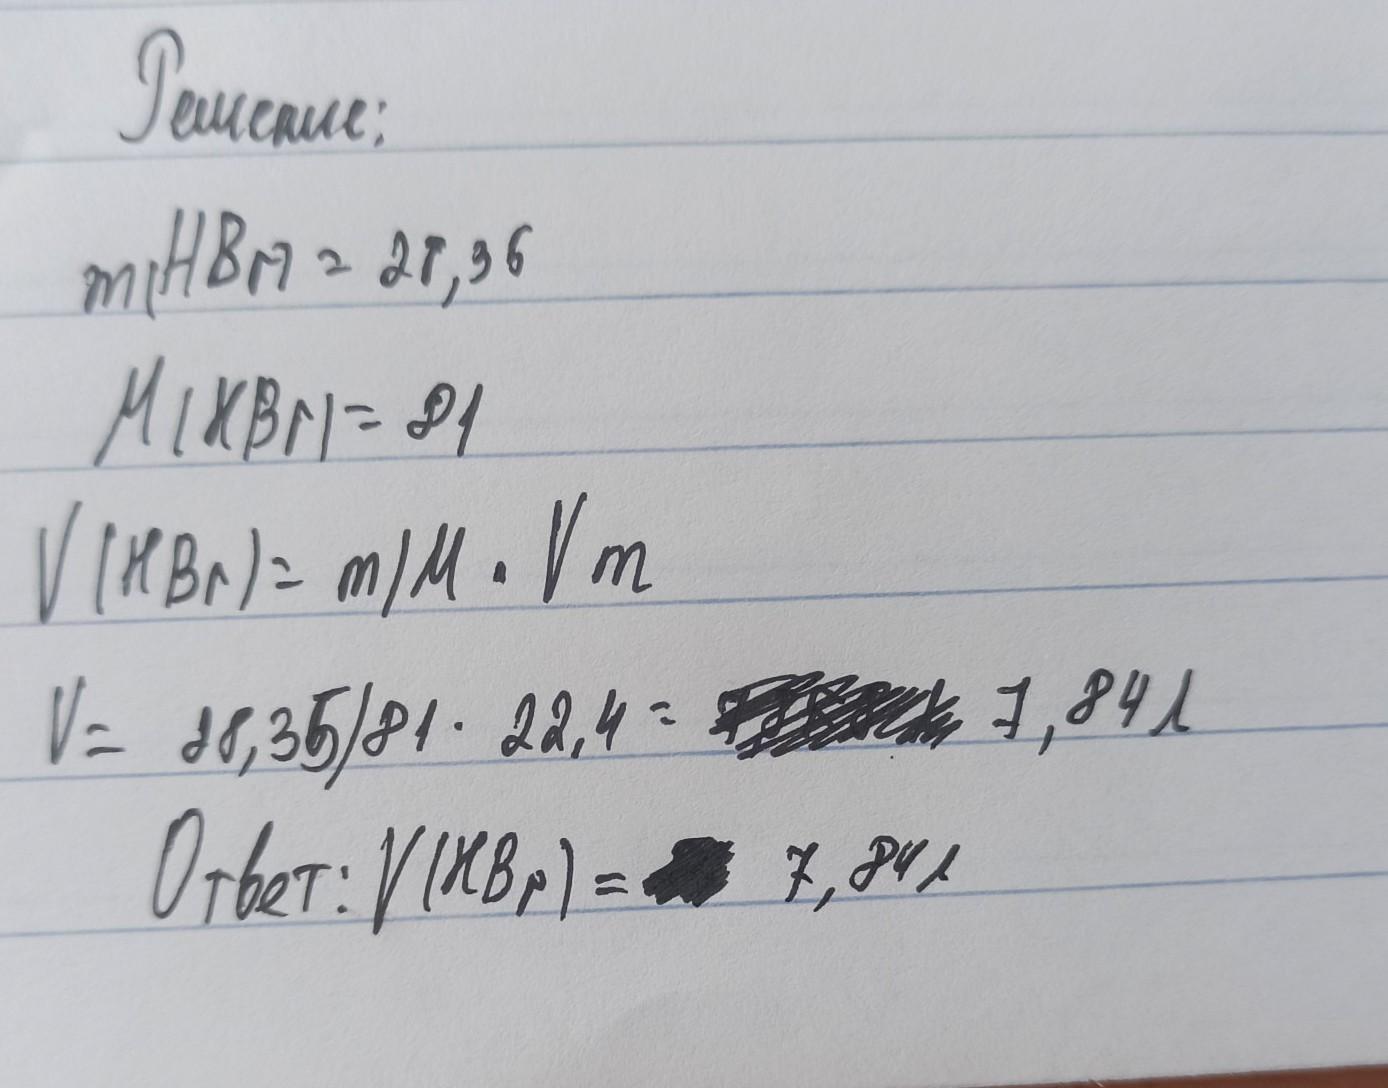 Решение:
m(HBr) = 28,36
M(HBr) = 81
V(HBr) = m/M · Vm
V = 28,35/81 · 22,4 = 7,84 л
Ответ: V(HBr) = 7,84 л